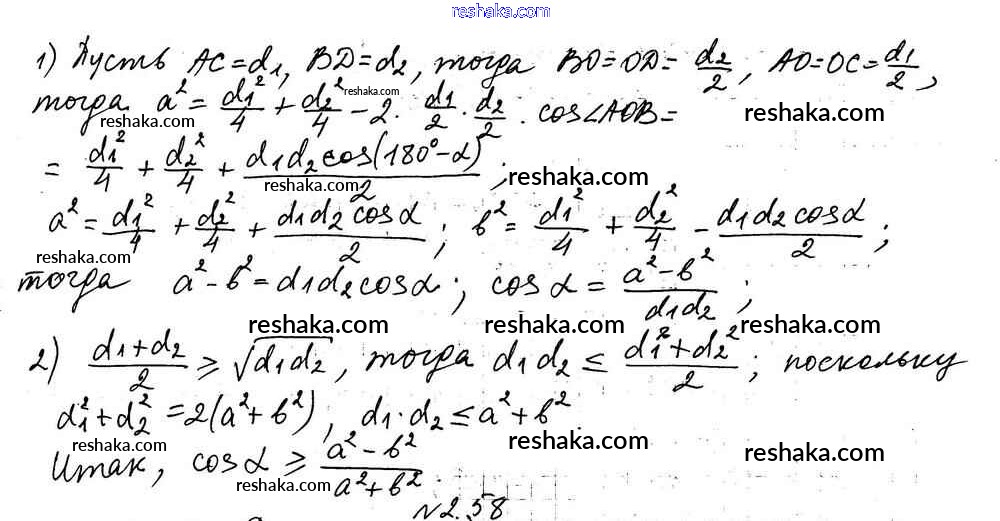 reshaka.com
1) Пусть AC=d₁, BD=d₂, тогда BO=OD=d₂/2, AO=OC=d₁/2,
тогда a²=d₁²/4+d₂²/4-2·d₁/2·d₂/2·cos∠AOB=
reshaka.com
reshaka.com
reshaka.com
=d₁²/4+d₂²/4+d₁d₂cos(180°-α)/2;
reshaka.com
reshaka.com
a²=d₁²/4+d₂²/4+d₁d₂cosα/2; b²=d₁²/4+d₂²/4-d₁d₂cosα/2;
reshaka.com
reshaka.com
тогда a²-b²=d₁d₂cosα; cosα=(a²-b²)/(d₁d₂);
reshaka.com
reshaka.com
2) (d₁+d₂)/2≥√(d₁d₂), тогда d₁d₂≤(d₁²+d₂²)/2; поскольку
d₁²+d₂²=2(a²+b²), d₁·d₂≤a²+b²
reshaka.com
reshaka.com
reshaka.com
Итак, cosα≥(a²-b²)/(a²+b²)
reshaka.com
reshaka.com
N2.58